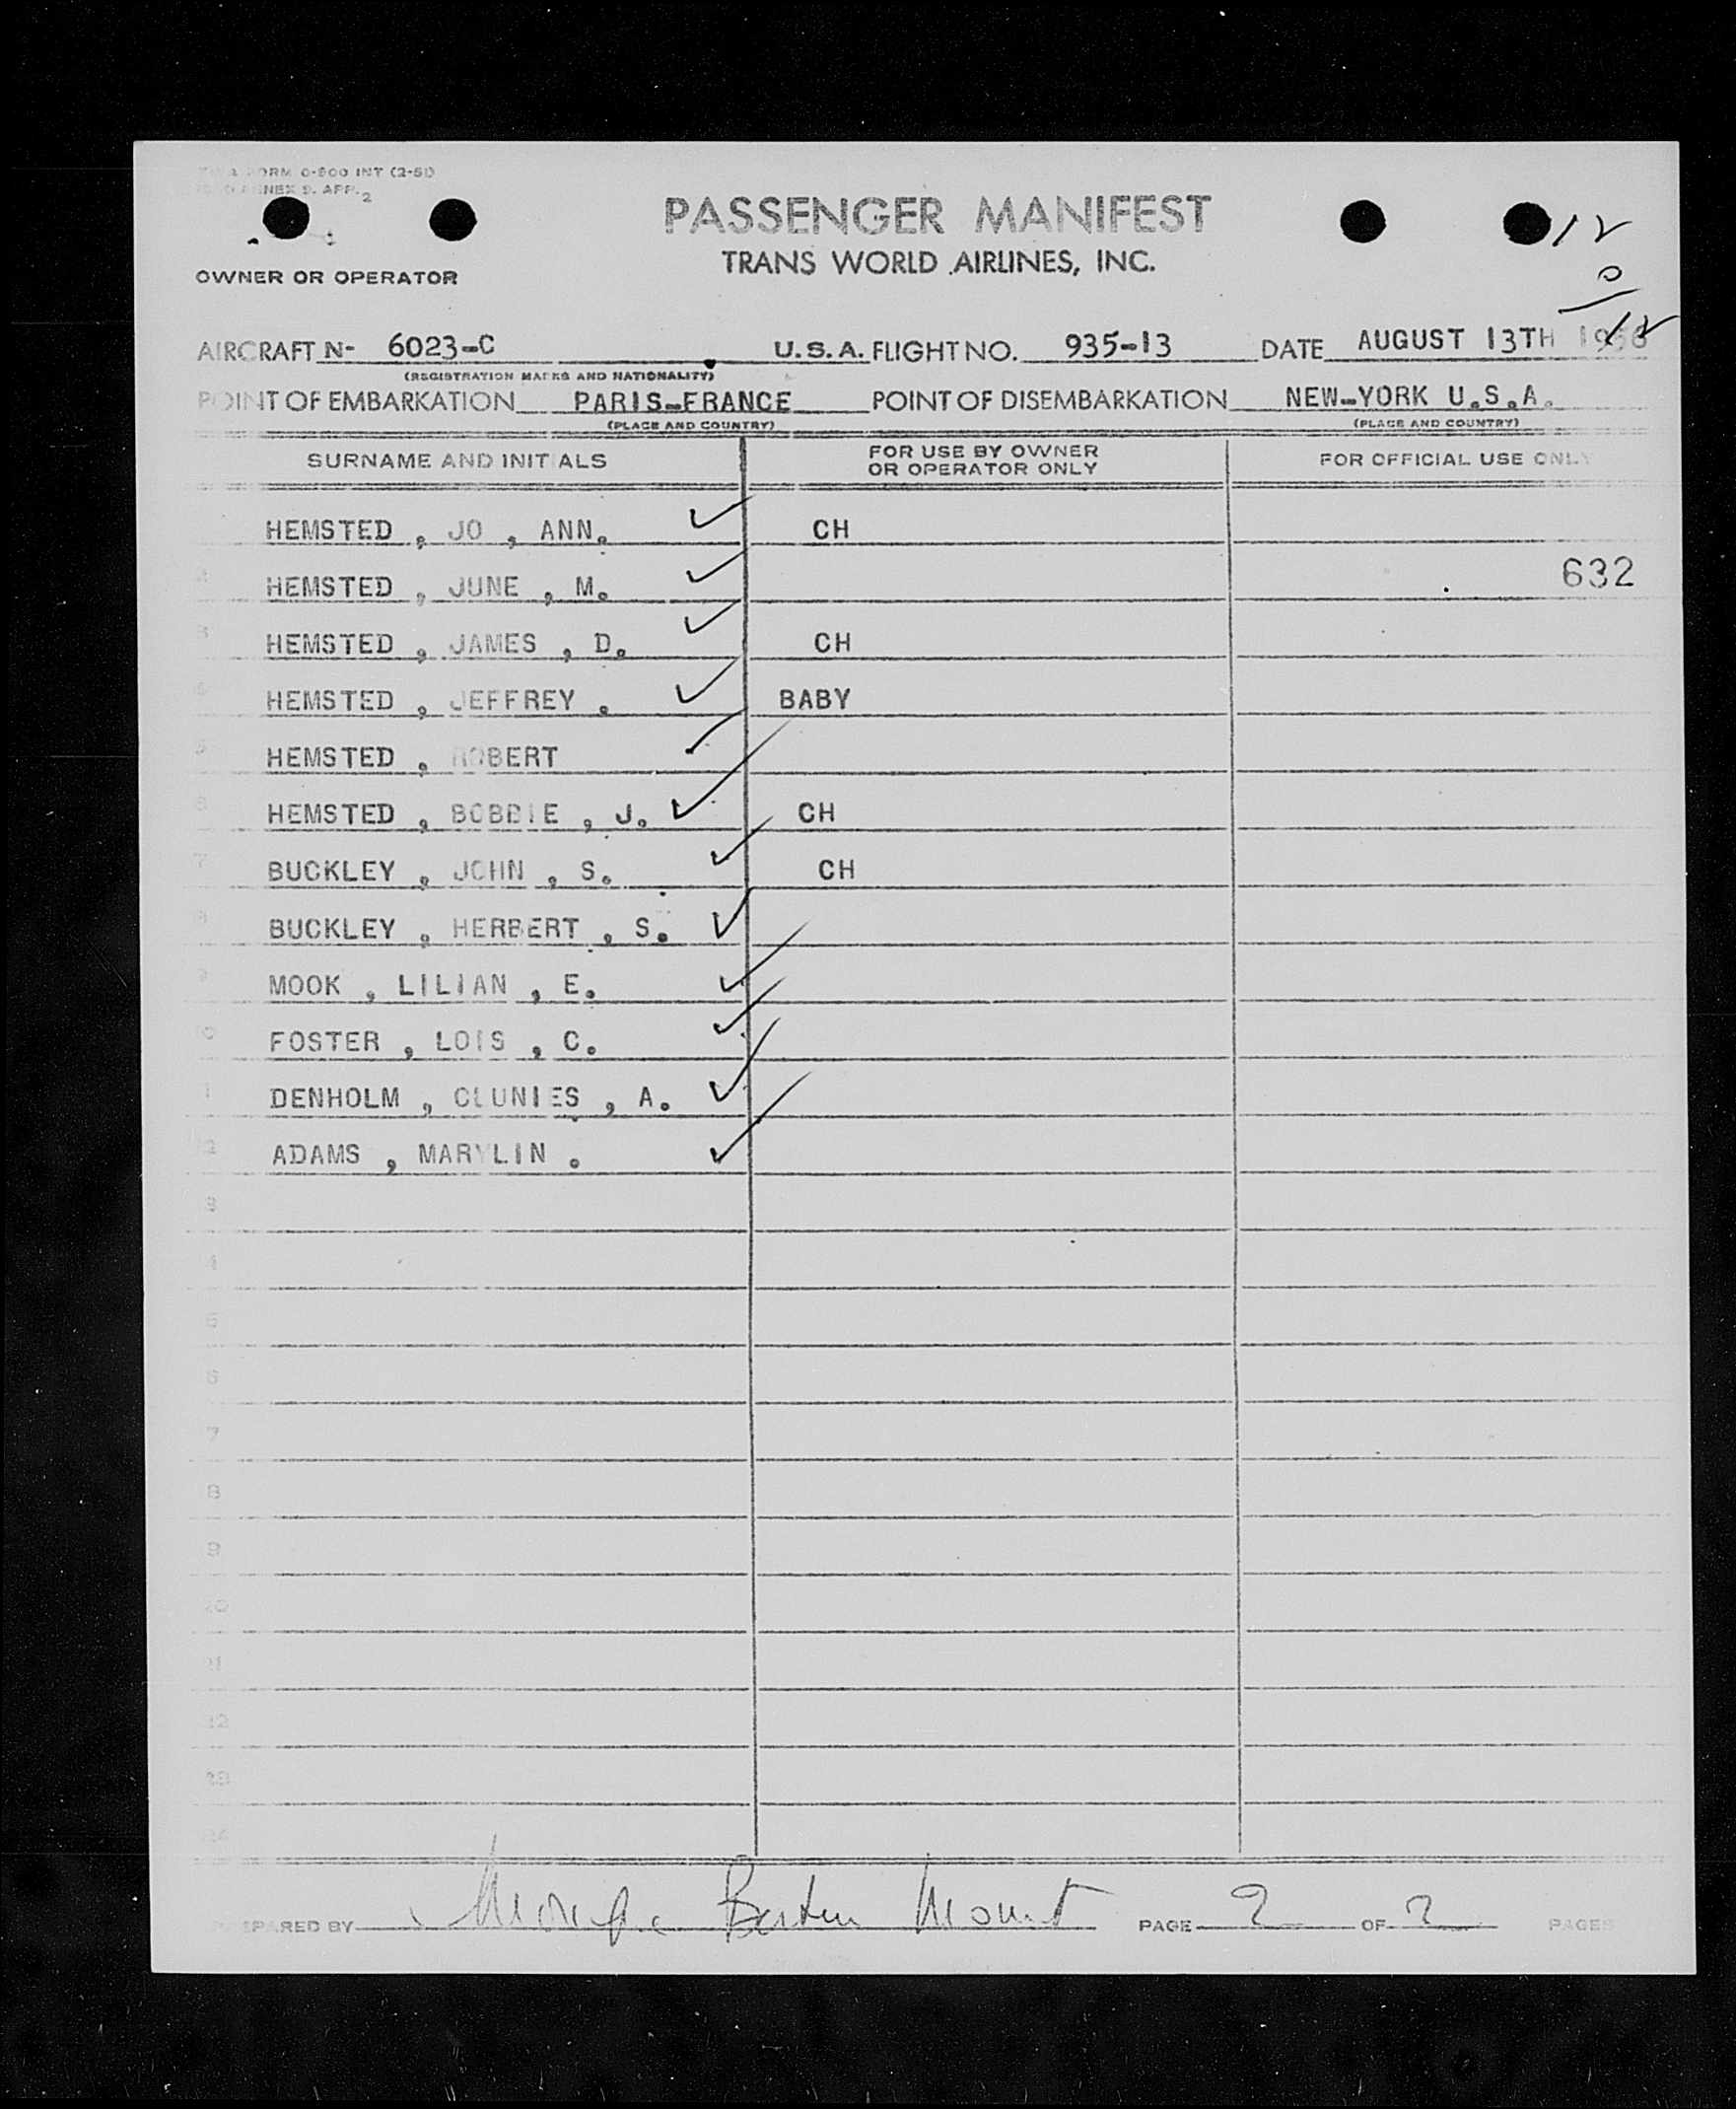 FORM 0-900 INT (2-51)
ANNEX 9. APP. 2
PASSENGER MANIFEST
12
TRANS WORLD AIRLINES, INC.
0
OWNER OR OPERATOR
12
AIRCRAFT N- 6023-C U.S.A. FLIGHT NO. 935-13 DATE AUGUST 13TH
(REGISTRATION MARKS AND NATIONALITY)
POINT OF EMBARKATION PARIS-FRANCE POINT OF DISEMBARKATION NEW-YORK U.S.A.
(PLACE AND COUNTRY) (PLACE AND COUNTRY)
SURNAME AND INITIALS FOR USE BY OWNER OR OPERATOR ONLY FOR OFFICIAL USE ONLY
HEMSTED , JO , ANN. CH
2 HEMSTED , JUNE , M. 632
3 HEMSTED , JAMES , D. CH
4 HEMSTED , JEFFREY . BABY
5 HEMSTED , ROBERT
6 HEMSTED , BOBBIE , J. CH
7 BUCKLEY , JOHN , S. CH
8 BUCKLEY , HERBERT , S.
9 MOOK , LILIAN , E.
0 FOSTER , LOIS , C.
1 DENHOLM , CLUNIES , A.
2 ADAMS , MARYLIN .
3
4
5
6
7
8
9
20
21
22
23
24
PREPARED BY PAGE 2 OF 2 PAGES